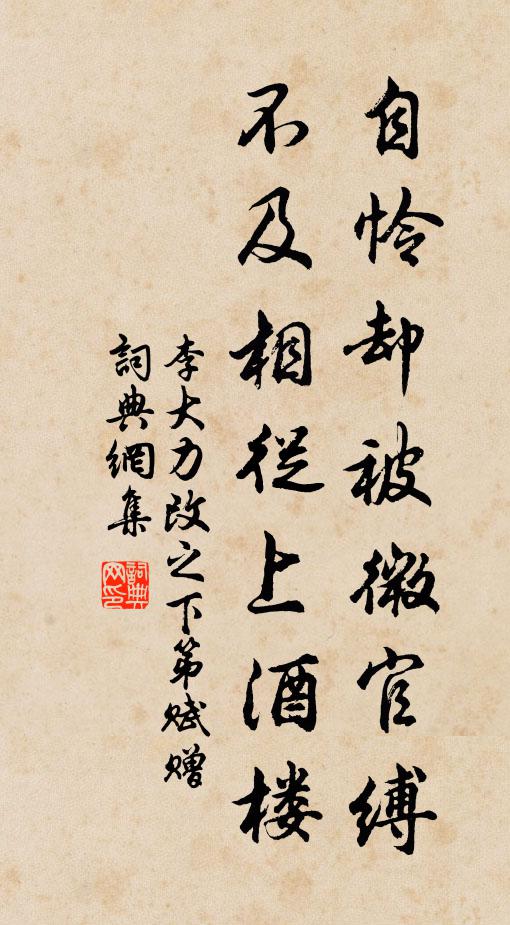 自怜却被微官缚
不及相从上酒楼
李大力改之下第赋赠
詞典網集
詞典
网印